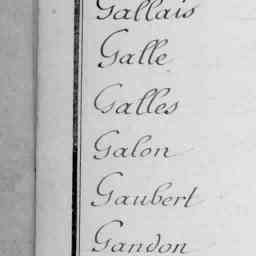 Gallais
Galle
Galles
Galon
Gaubert
Gandon